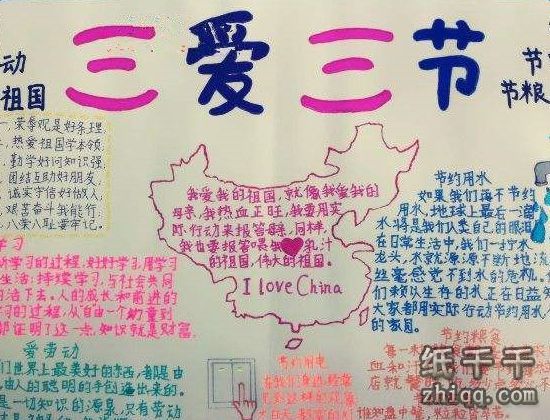 三爱三节
动
祖国
节
节粮
一、荣辱观是好条理,
热爱祖国学本领,
勤学好问知识强,
团结互助好朋友,
诚实守信好做人,
艰苦奋斗我能行,
八荣八耻要牢记。
学习
学习的过程,好好学,用学习
生活;持续学习,与社会共同
活下去。人的成长和前进的
习的过程,从自由一个幼童到
都证明了这一点,知识就是财富。
爱劳动
们世界上最美好的东西,都是由
由人的聪明的手创造出来的。
是一切知识的源泉,只有劳动
我爱我的祖国,就像我爱我的
母亲,我热血正旺,我要用实
际行动来报答她,同样,
我也要报答喂我乳汁
的祖国,伟大的祖国。
I love China
节约用电
节约用水
如果我们再不节约
用水,地球上最后一滴
水将是我们人类自己的眼泪
在日常生活中,我们一拧水
龙头,水就源源不断地流
丝毫感觉不到水的危机。
们赖以生存的水正在日益
大家都用实际行动节约用水
的家园。
节约粮食
每一粒
血和汗
店就餐
纸千千
zhiqq.com